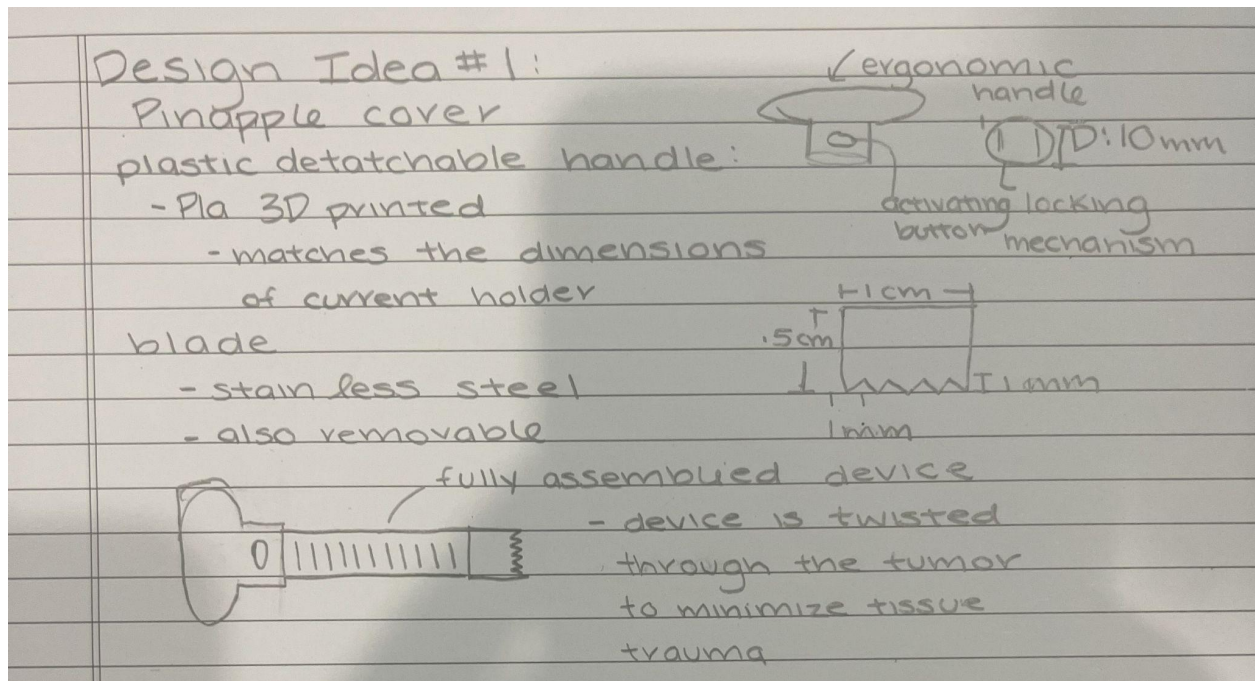 Design Idea #1:
Pinapple cover
plastic detatchable handle:
- Pla 3D printed
- matches the dimensions
of current holder
blade
- stainless steel
- also removable
ergonomic
handle
D:10mm
activating
button
locking
mechanism
1cm
.5cm
1mm
1mm
fully assemblied device
- device is twisted
through the tumor
to minimize tissue
trauma